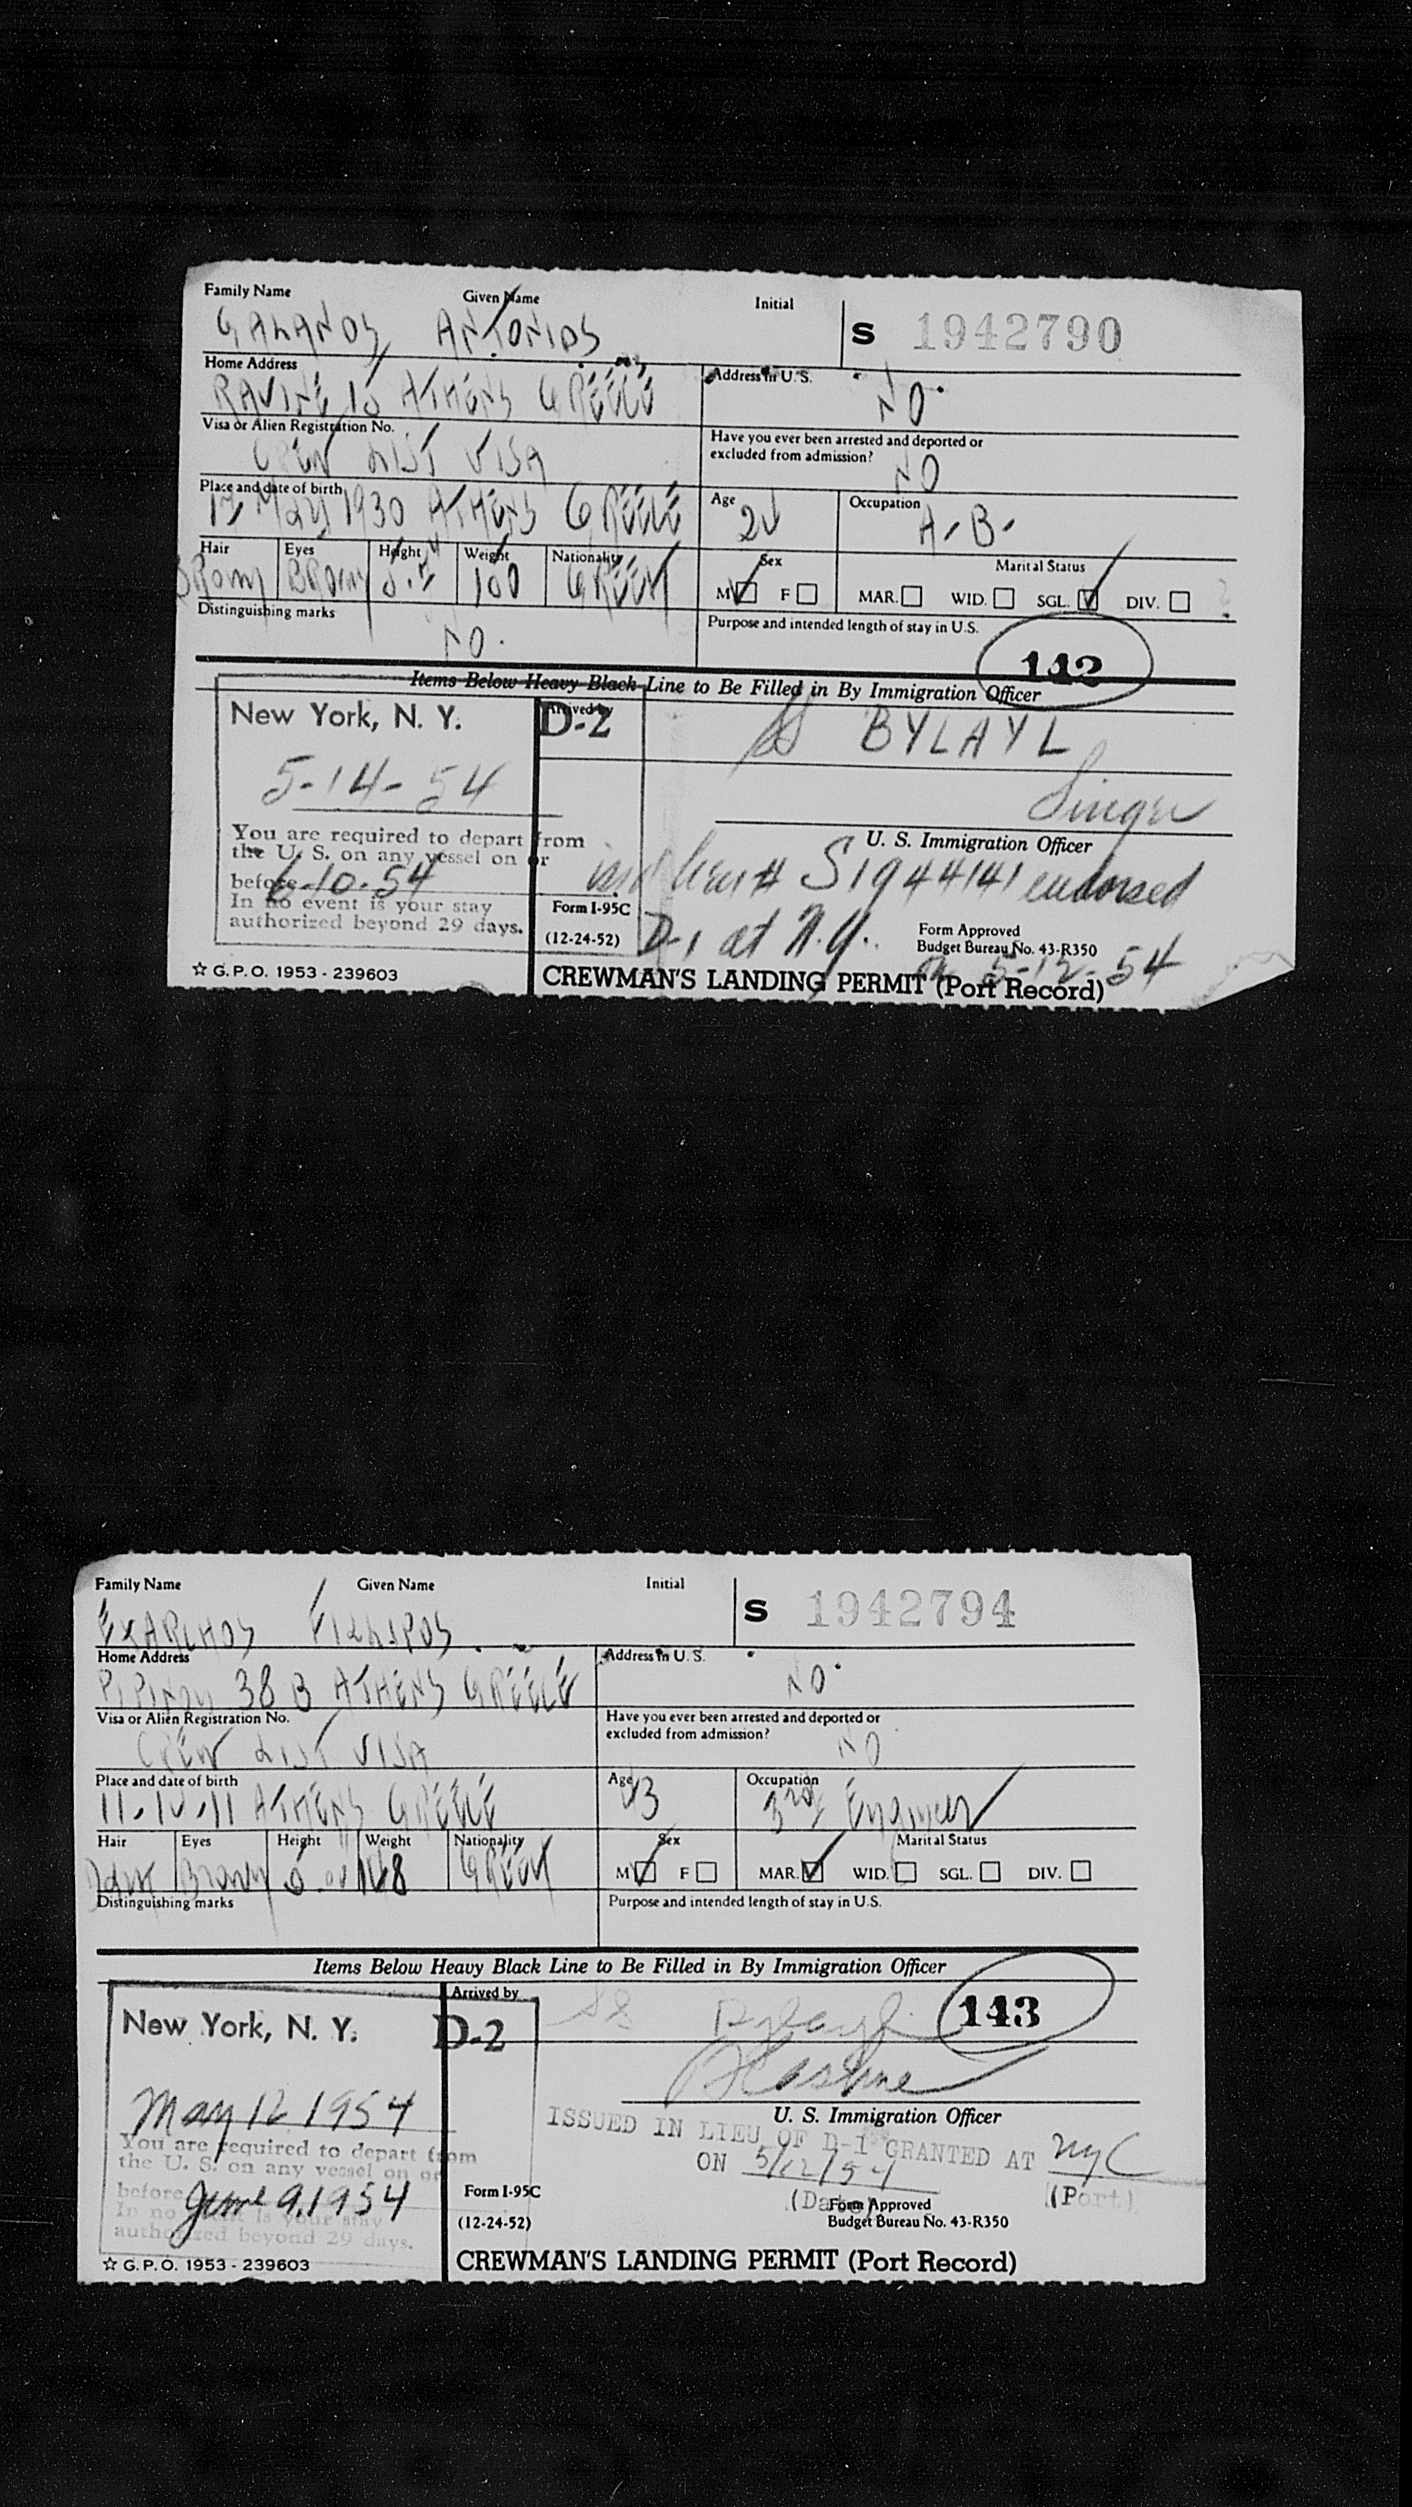 Family Name Given Name Initial
GALANOS ANTONIOS S 1942790
Home Address Address in U.S.
RAVINE 10 ATHENS GREECE NO.
Visa or Alien Registration No. Have you ever been arrested and deported or
excluded from admission?
CREW LIST VISA NO
Place and date of birth Age Occupation
May 1930 ATHENS GREECE A-B-
Hair Eyes Height Weight Nationality Sex Marital Status
BROWN BROWN GREEK M F MAR. WID. SGL. DIV.
Distinguishing marks Purpose and intended length of stay in U.S.
NO. 142
Items Below Heavy Black Line to Be Filled in By Immigration Officer
New York, N. Y. Arrived by
D-2 SS BYLAYL
5-14-54
You are required to depart from U. S. Immigration Officer
the U. S. on any vessel on or
before 6-10-54 S1944141 endorsed
In no event is your stay Form I-95C
authorized beyond 29 days. (12-24-52) D-1 at N.Y. Form Approved
Budget Bureau No. 43-R350
on 5-12-54
☆ G.P.O. 1953 - 239603 CREWMAN'S LANDING PERMIT (Port Record)
Family Name Given Name Initial
EXARCHOS FILIPPOS S 1942794
Home Address Address in U.S.
38 B ATHENS GREECE NO.
Visa or Alien Registration No. Have you ever been arrested and deported or
excluded from admission?
CREW LIST VISA NO
Place and date of birth Age Occupation
ATHENS GREECE 3rd Engineer
Hair Eyes Height Weight Nationality Sex Marital Status
Dark Brown GREEK M F MAR. WID. SGL. DIV.
Distinguishing marks Purpose and intended length of stay in U.S.
Items Below Heavy Black Line to Be Filled in By Immigration Officer
Arrived by
New York, N. Y. D-2 SS Bylayl 143
May 12 1954
U. S. Immigration Officer
You are required to depart from ISSUED IN LIEU OF D-1 GRANTED AT NYC
the U. S. on any vessel on or ON 5/12/54
before June 9, 1954 Form I-95C (Date) (Port)
In no event is your stay Form Approved
authorized beyond 29 days. (12-24-52) Budget Bureau No. 43-R350
☆ G.P.O. 1953 - 239603 CREWMAN'S LANDING PERMIT (Port Record)